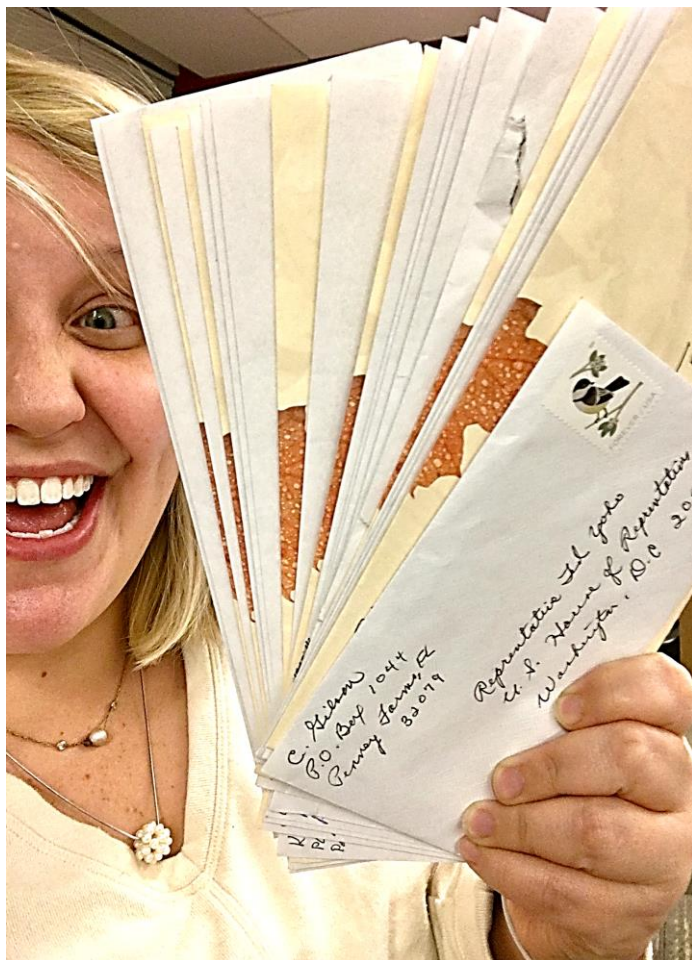 FOREVER USA
C. Gibson
P.O. Box 1044
Penney Farms, FL
32079
Representative Ted Yoho
U.S. House of Representatives
Washington, D.C 20